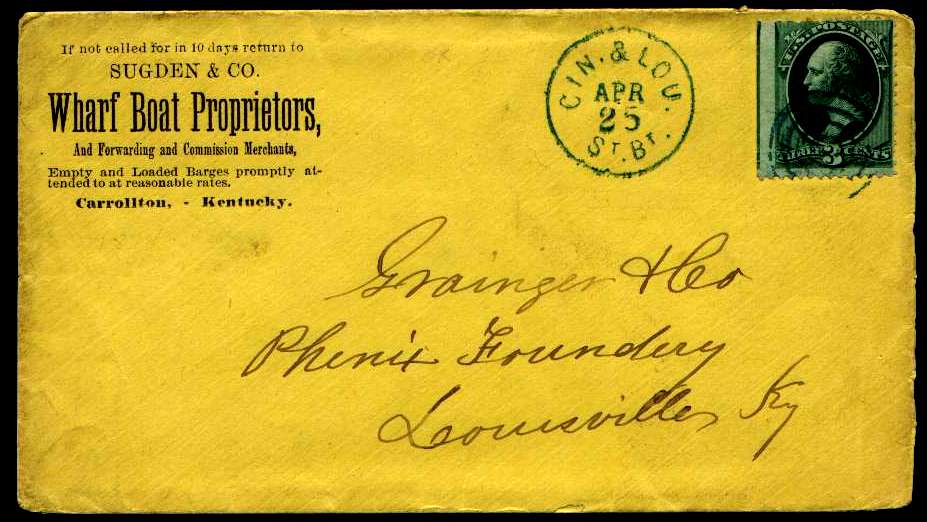 If not called for in 10 days return to
SUGDEN & CO.
Wharf Boat Proprietors,
And Forwarding and Commission Merchants,
Empty and Loaded Barges promptly at-
tended to at reasonable rates.
Carrollton, - Kentucky.
CIN. & LOU.
APR
25
ST. BT.
U.S. POSTAGE
THREE 3 CENTS
Grainger & Co
Phenix Foundery
Louisville Ky